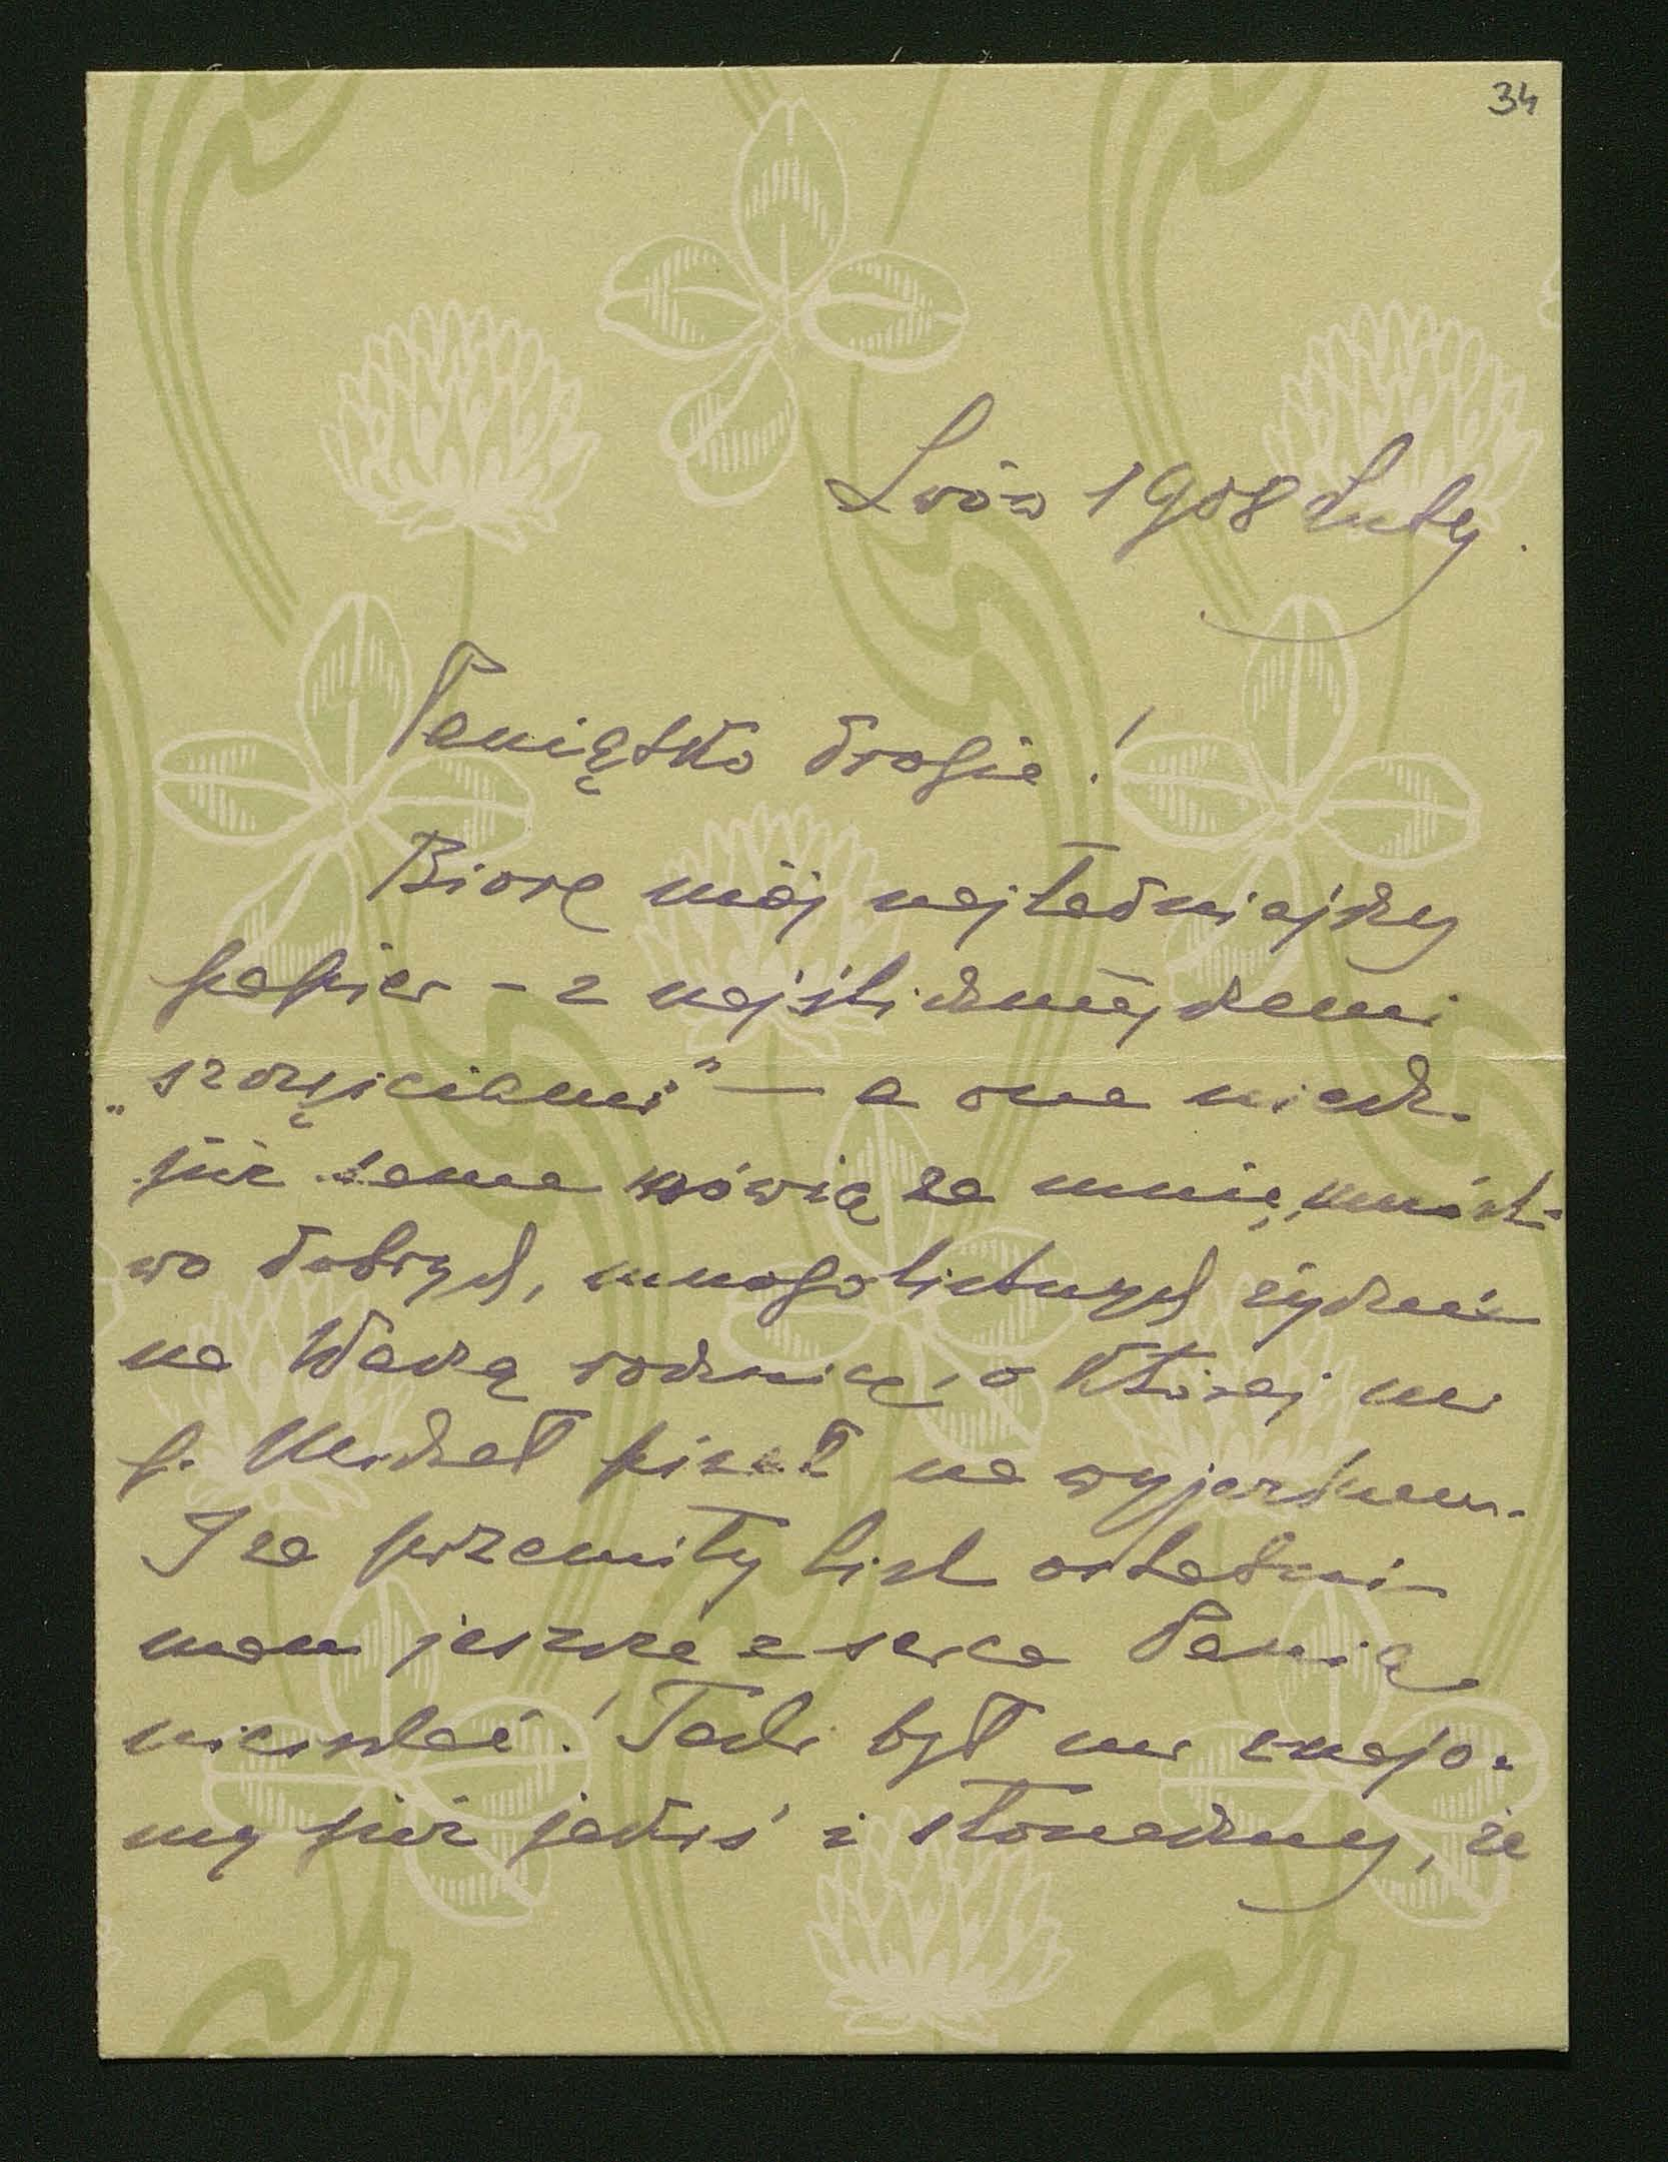 34
Lwów 1908 Luty.
Paniątko drogie!
Biorę mój najładniejszy
papier – z najśliczniejszemi
„szczęściami" — a one niech
już same mówią za mnie, mnóst-
wo dobrych, mnogolistnych życzeń
na Waszą rocznicę, o której mi
p. Michał pisał na wyjezdnem.
I za przemiły list ostatni
mam jeszcze z serca Panią
uściskać! Taki był mi znajo-
my już jakiś i słoneczny, że